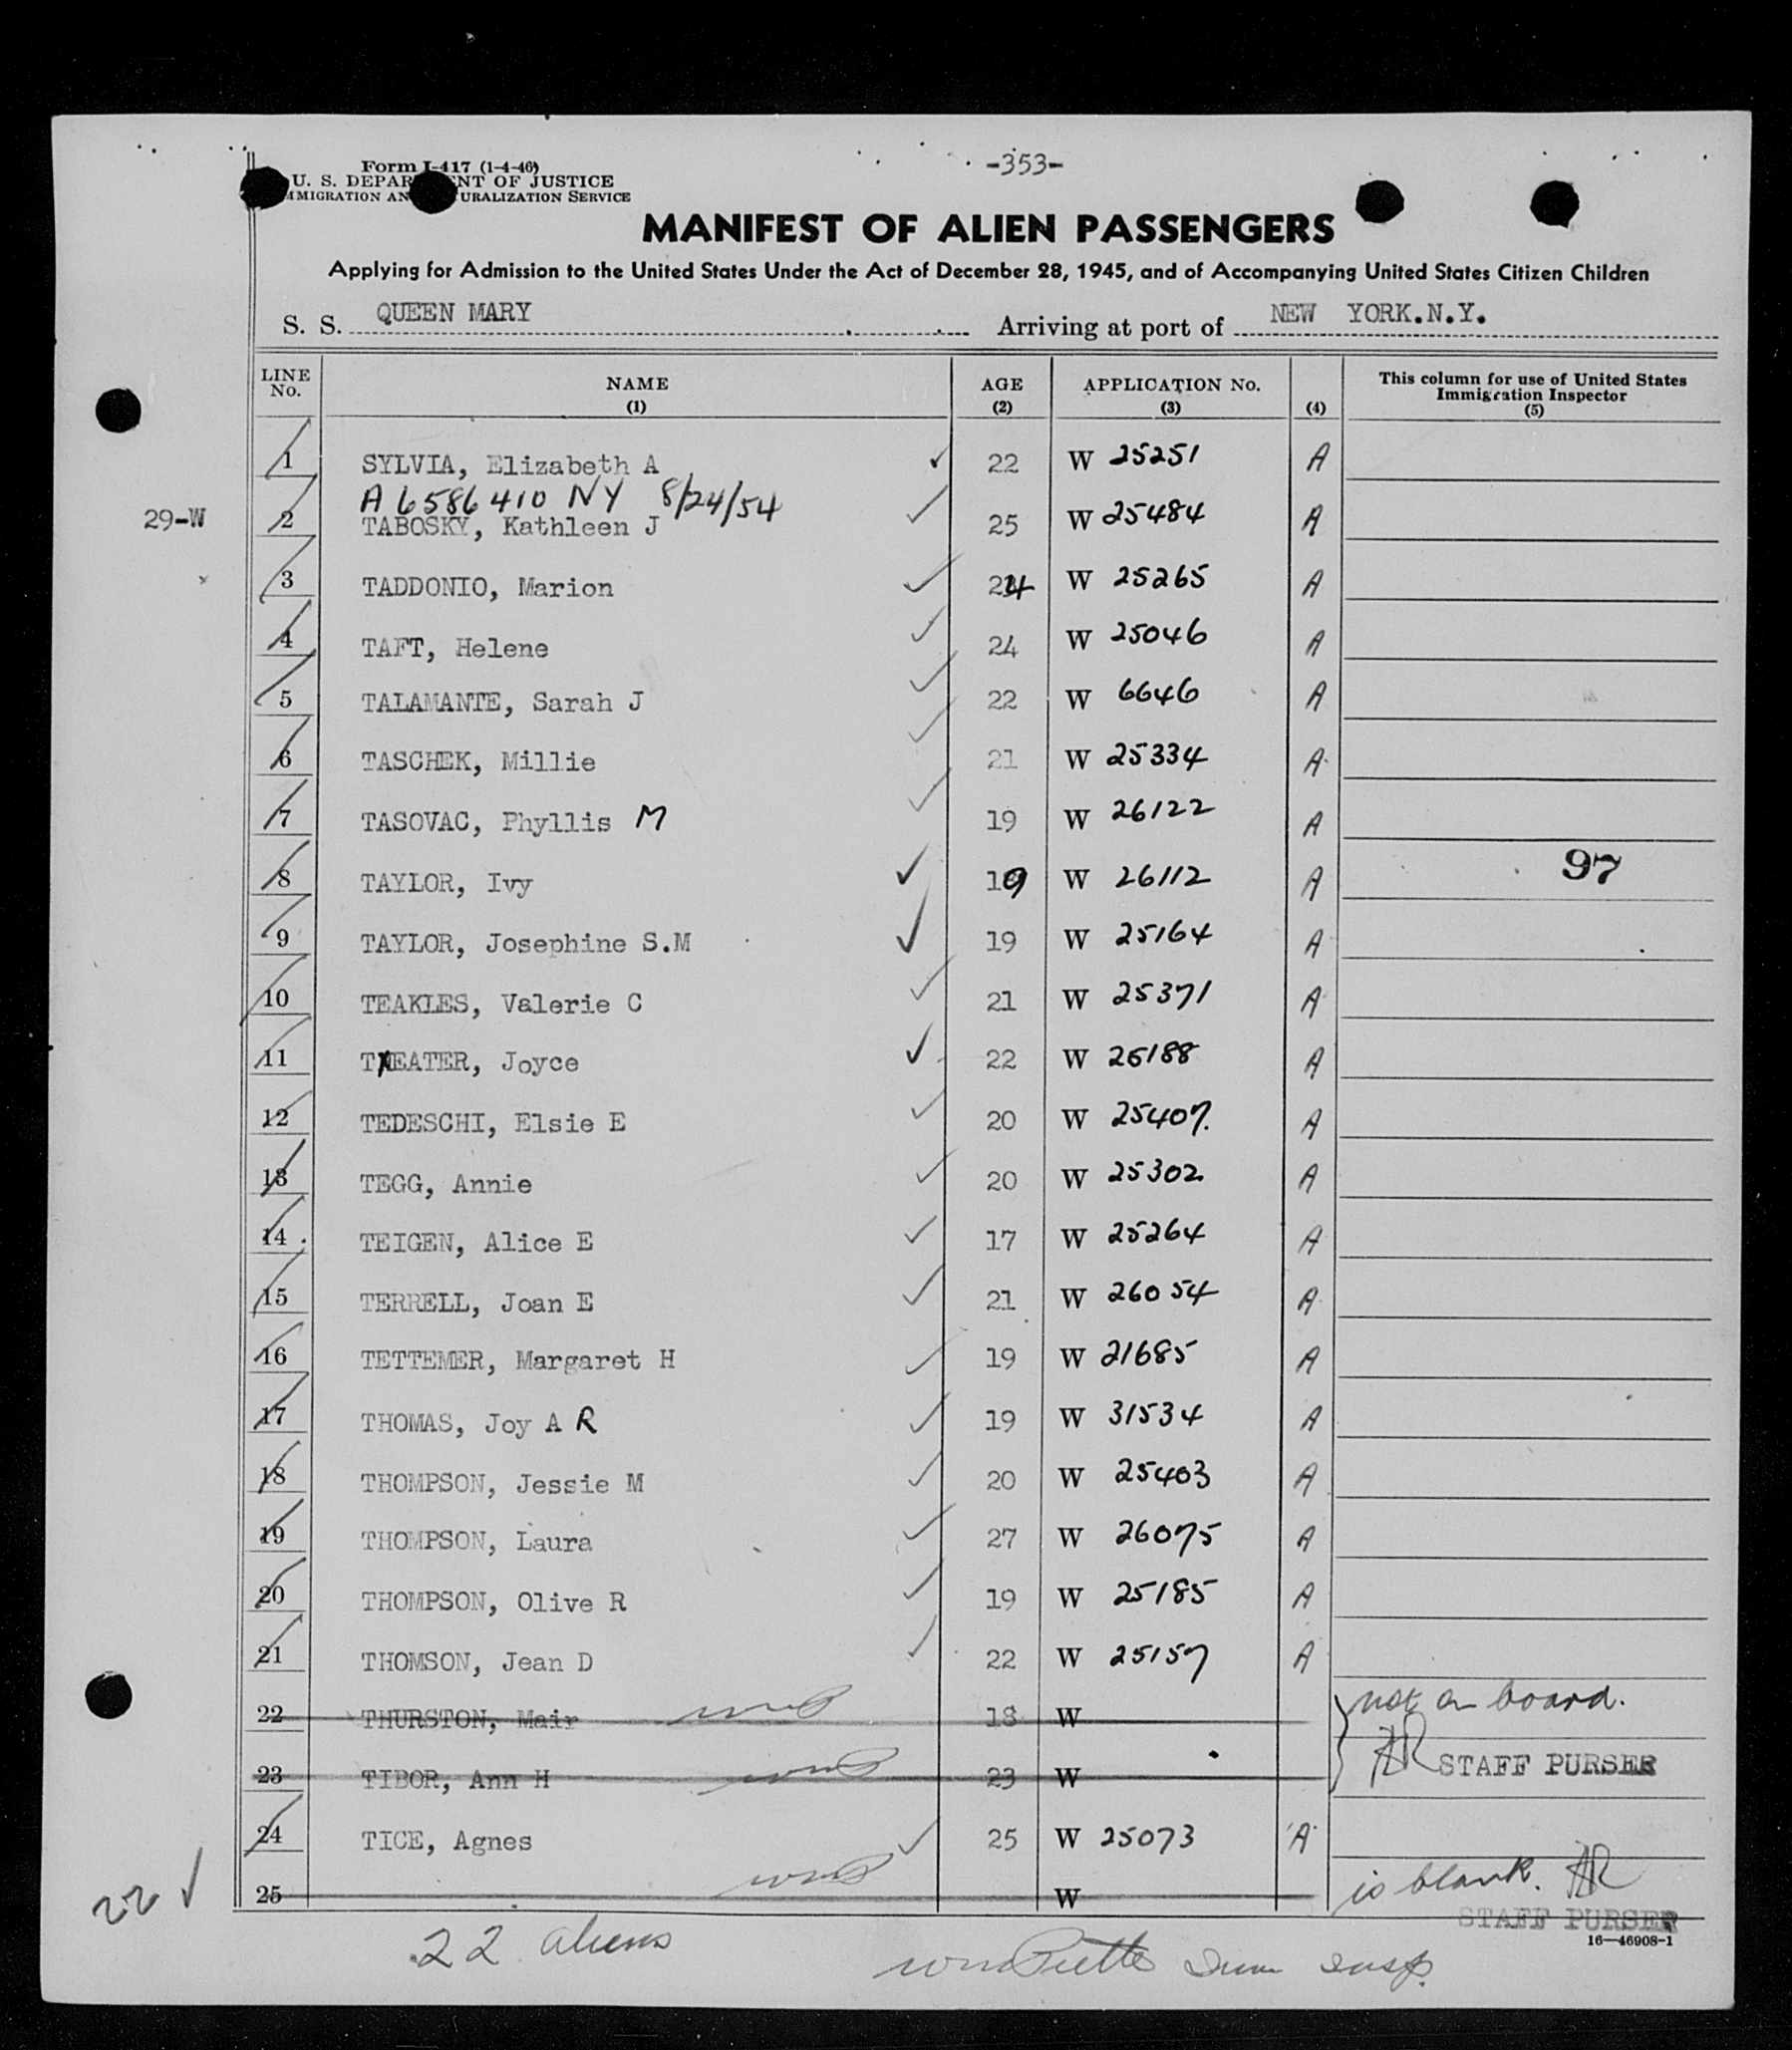 -353-
Form I-417 (1-4-46)
U. S. DEPAR ENT OF JUSTICE
MMIGRATION AN URALIZATION SERVICE
MANIFEST OF ALIEN PASSENGERS
Applying for Admission to the United States Under the Act of December 28, 1945, and of Accompanying United States Citizen Children
S. S. QUEEN MARY Arriving at port of NEW YORK.N.Y.
LINE No. NAME (1) AGE (2) APPLICATION No. (3) (4) This column for use of United States Immigration Inspector (5)
1 SYLVIA, Elizabeth A 22 W 25251 A
A6586410 NY 8/24/54
29-W 2 TABOSKY, Kathleen J 25 W 25484 A
3 TADDONIO, Marion 24 W 25265 A
4 TAFT, Helene 24 W 25046 A
5 TALAMANTE, Sarah J 22 W 6646 A
6 TASCHEK, Millie 21 W 25334 A
7 TASOVAC, Phyllis M 19 W 26122 A
8 TAYLOR, Ivy 19 W 26112 A 97
9 TAYLOR, Josephine S.M 19 W 25164 A
10 TEAKLES, Valerie C 21 W 25371 A
11 TEATER, Joyce 22 W 26188 A
12 TEDESCHI, Elsie E 20 W 25407. A
13 TEGG, Annie 20 W 25302 A
14 TEIGEN, Alice E 17 W 25264 A
15 TERRELL, Joan E 21 W 26054 A
16 TETTEMER, Margaret H 19 W 21685 A
17 THOMAS, Joy A R 19 W 31534 A
18 THOMPSON, Jessie M 20 W 25403 A
19 THOMPSON, Laura 27 W 26075 A
20 THOMPSON, Olive R 19 W 25185 A
21 THOMSON, Jean D 22 W 25157 A
22 THURSTON, Mair 18 W not on board.
23 TIBOR, Ann H 23 W STAFF PURSER
24 TICE, Agnes 25 W 25073 A
25 W is blank.
STAFF PURSER
22 ✓
16—46908-1
22 aliens
Imm Insp.